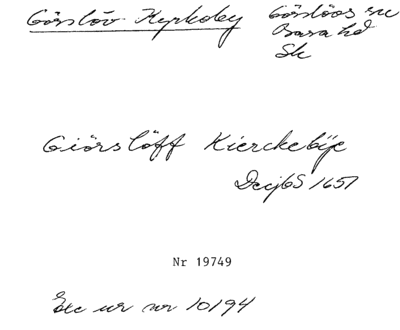 Görslöv Kyrkoby
Görslövs sn
Bara hd
Sk
Giörslöff Kierckebÿe
DecjbS 1651
Nr 19749
Exc ur nr 10194